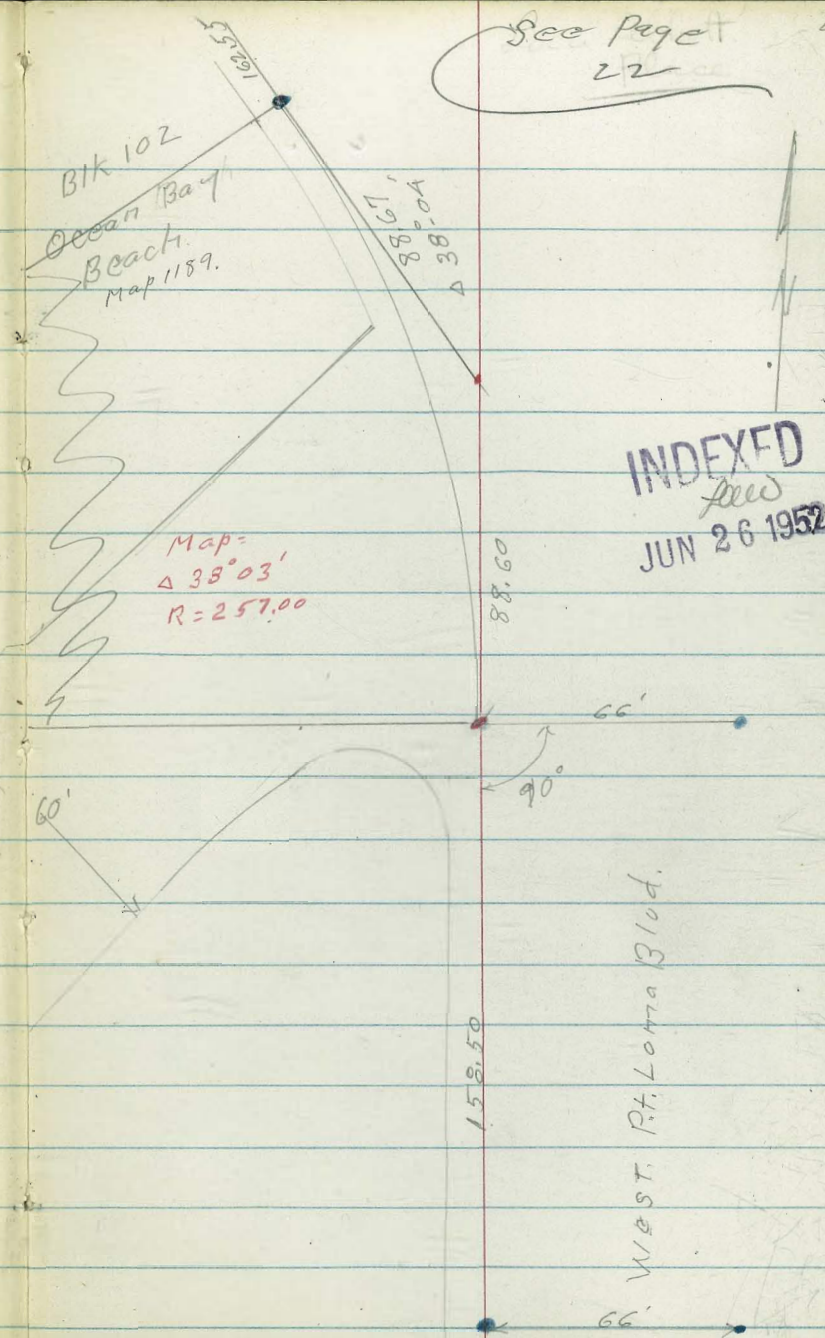 See Page
22
162.55
Blk 102
Ocean Bay
Beach
Map 1189.
88.67'
Δ 38°04'
N
INDEXED
JUN 26 1952
Map=
Δ 38°03'
R=257.00
88.60
66'
90°
60'
158.50
West. Pt. Loma Blvd.
66'